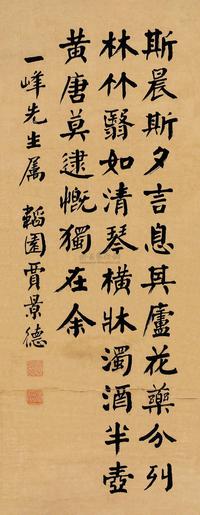 斯晨斯夕言息其廬花藥分列
林竹翳如清琴橫牀濁酒半壺
黃唐莫逮慨獨在余
一峰先生屬 韜園賈景德